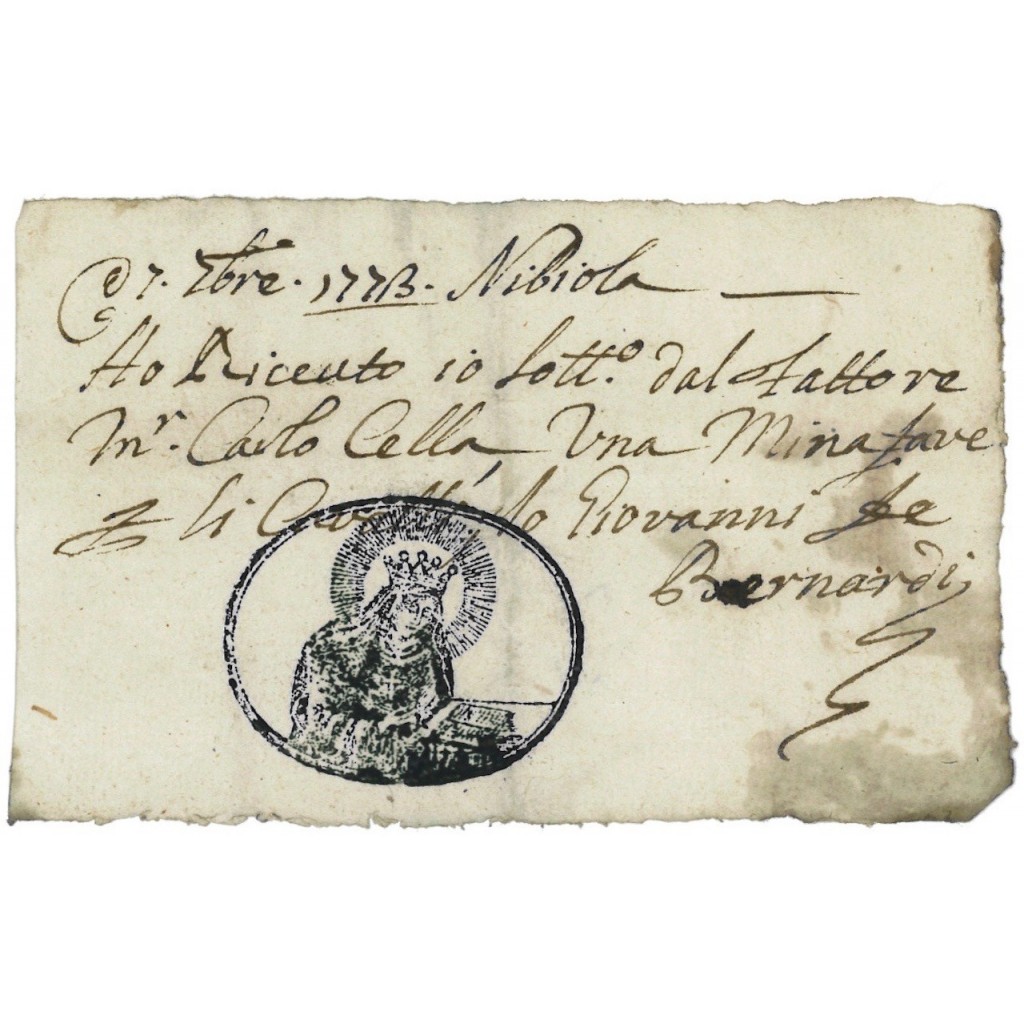 @ 7. 7bre. 1773. Nibiola
Ho Riceuto io Sott.º dal Fattore
Mr. Carlo Cella Una Mina fave
li Io Giovanni De
Bernardi